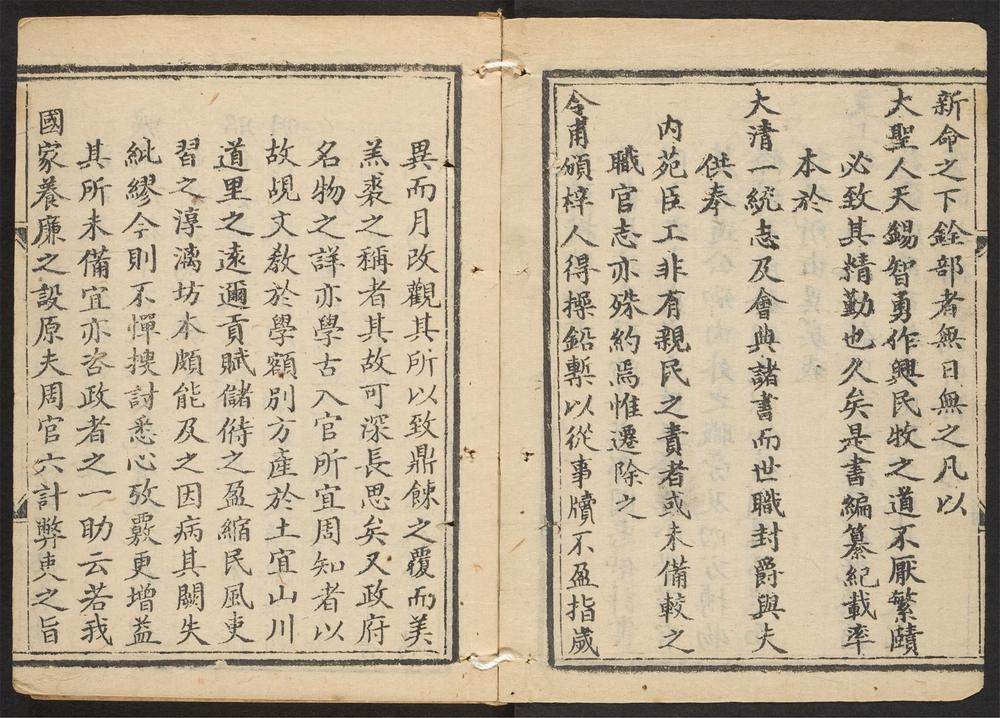 新命之下銓部者無日無之凡以
大聖人天錫智勇作興民牧之道不厭繁賾
必致其精勤也久矣是書編纂紀載率
本於
大清一統志及會典諸書而世職封爵與夫
供奉
內苑臣工非有親民之責者或未備較之
職官志亦殊約焉惟遷除之
令甫頒梓人得操鉛槧以從事牘不盈指歲
異而月改觀其所以致鼎餗之覆而美
羔裘之稱者其故可深長思矣又政府
名物之詳亦學古入官所宜周知者以
故峴文敎於學額別方產於土宜山川
道里之遠邇貢賦儲偫之盈縮民風吏
習之淳漓坊本頗能及之因病其闕失
紕繆今則不憚搜討悉心攷覈更增益
其所未備宜亦咨政者之一助云若我
國家養廉之設原夫周官六計弊吏之旨